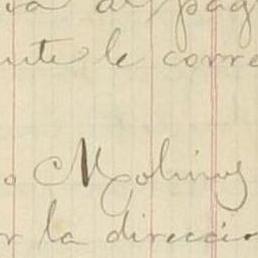 al pag
nte le corre
o Molinos
r la direccio